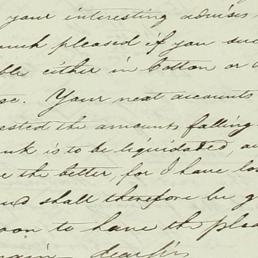 your interesting advises
much pleased if you suc
ble either in Cotton or
se. Your next accounts
ested the amounts falling
nk is to be liquidated, a
e the better, for I have lo
and shall therefore be g
oon to have the plea
again, dear Sir